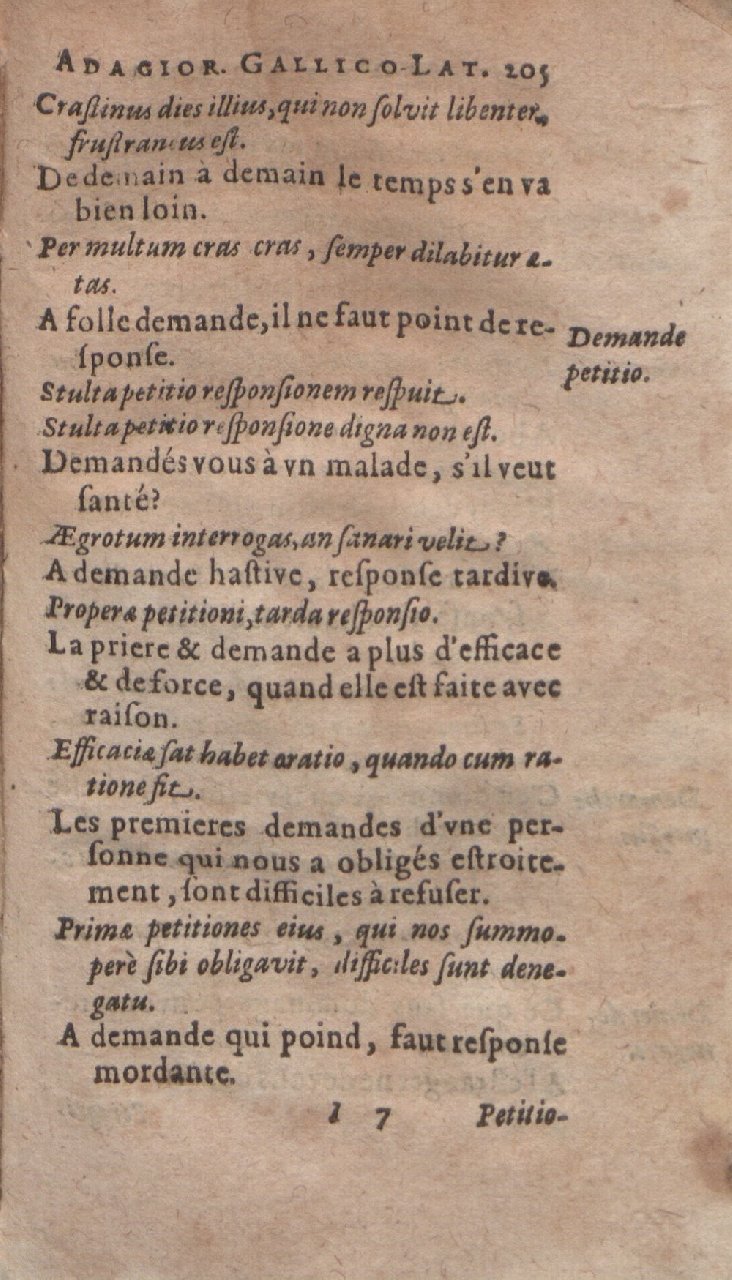 ADAGIOR. GALLICO-LAT. 205
Craſtinus dies illius, qui non ſolvit libenter,
fruſtraneus eſt.
De demain à demain le temps s'en va
bien loin.
Per multum cras cras, ſemper dilabitur æ-
tas.
A folle demande, il ne faut point de re-
ſponſe.
Demande
petitio.
Stulta petitio reſponſionem reſpuit.
Stulta petitio reſponſione digna non eſt.
Demandés vous à vn malade, s'il veut
ſanté?
Ægrotum interrogas, an ſanari velit?
A demande haſtive, reſponſe tardive.
Properæ petitioni, tarda reſponſio.
La priere & demande a plus d'efficace
& de force, quand elle eſt faite avec
raiſon.
Efficaciæ ſat habet oratio, quando cum ra-
tione fit.
Les premieres demandes d'vne per-
ſonne qui nous a obligés eſtroite-
ment, ſont difficiles à refuſer.
Primæ petitiones eius, qui nos ſummo-
perè ſibi obligavit, difficiles ſunt dene-
gatu.
A demande qui poind, faut reſponſe
mordante.
I 7 Petitio-